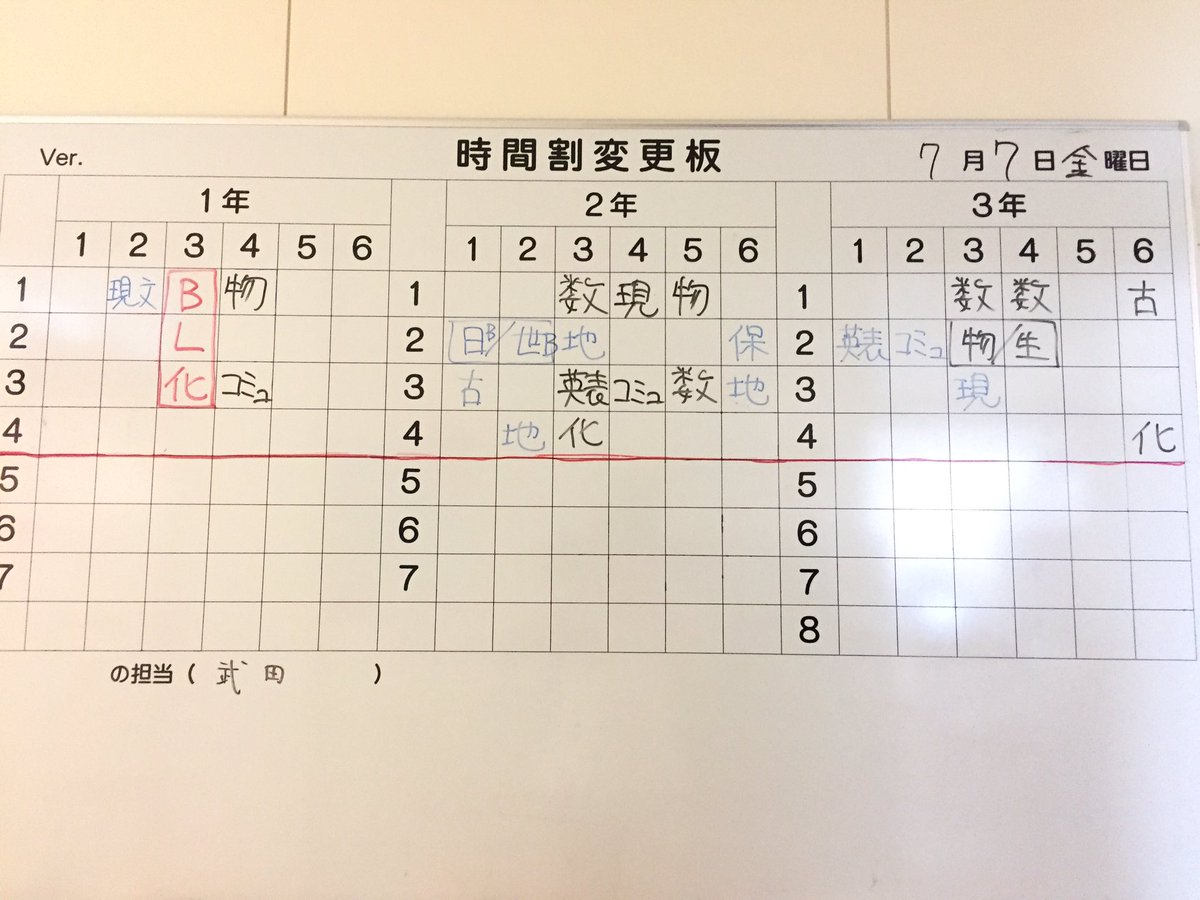 Ver. 時間割変更板 7月7日金曜日
1年 2年 3年
1 2 3 4 5 6 1 2 3 4 5 6 1 2 3 4 5 6
1 現文 B 物 1 数 現 物 1 数 数 古
2 L 2 日B/世B 地 保 2 英表 コミュ 物/生
3 化 コミュ 3 古 英表 コミュ 数 地 3 現
4 4 地 化 4 化
5 5 5
6 6 6
7 7 7
8
の担当(武田)